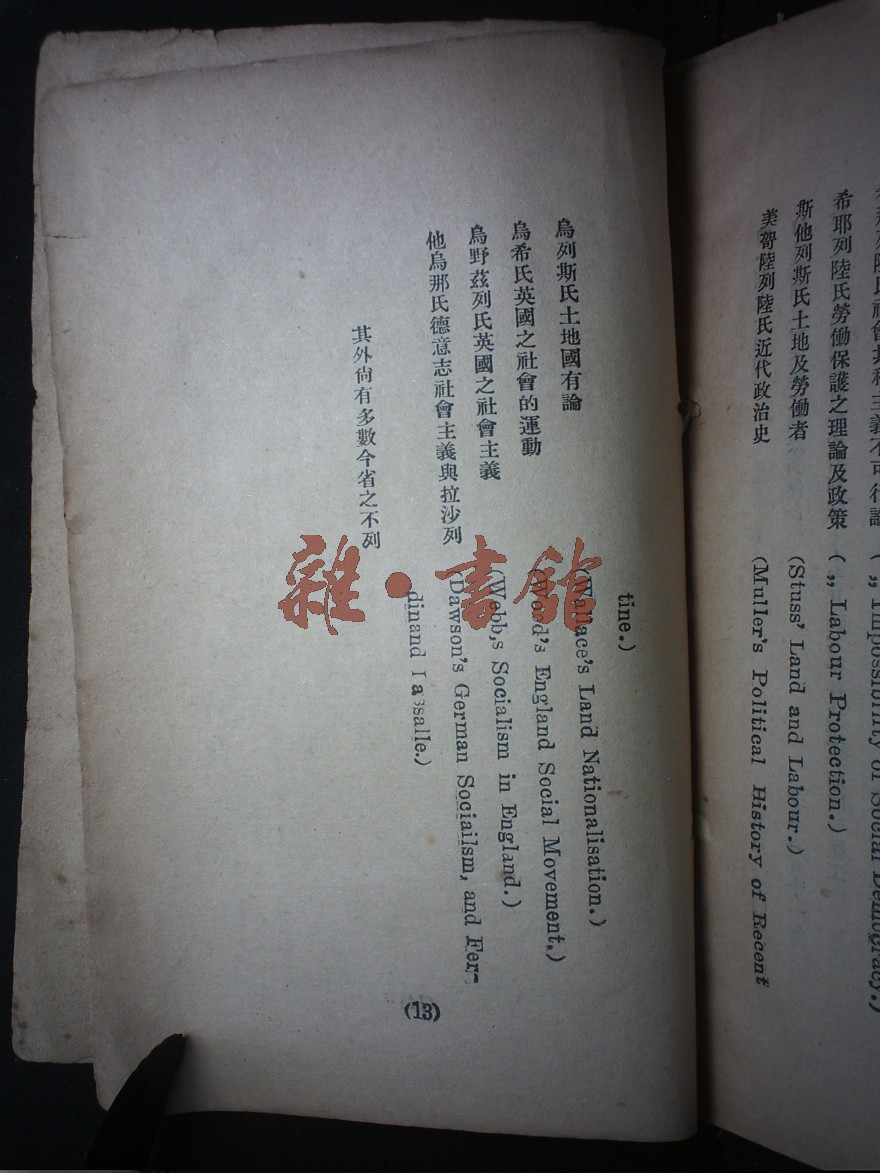 希耶列陸氏勞働保護之理論及政策 ( „ Labour Protection.)
斯他列斯氏土地及勞働者 (Stuss' Land and Labour.)
美智陸列陸氏近代政治史 (Muller's Political History of Recent
tine.)
烏列斯氏土地國有論 (Wallace's Land Nationalisation.)
烏希氏英國之社會的運動 (Wood's England Social Movement.)
烏野茲列氏英國之社會主義 (Webb,s Socialism in England.)
他烏那氏德意志社會主義與拉沙列 (Dawson's German Sociailsm, and Fer-
dinand Lassalle.)
其外尙有多數今省之不列
(13)
雜·書館